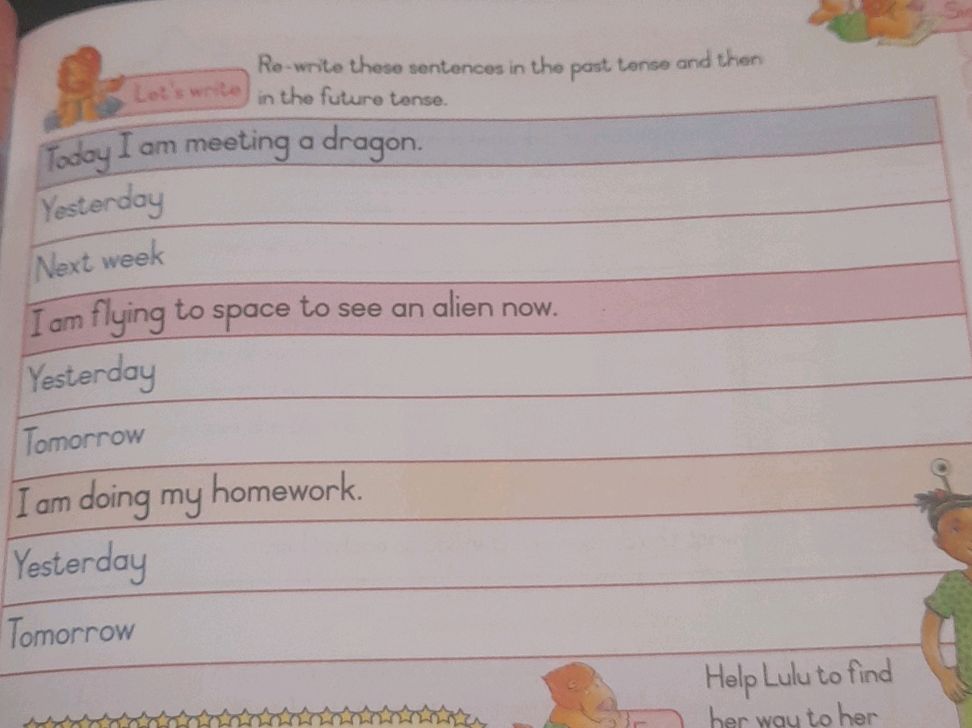 Re-write these sentences in the past tense and then
Let's write
in the future tense.
Today I am meeting a dragon.
Yesterday
Next week
I am flying to space to see an alien now.
Yesterday
Tomorrow
I am doing my homework.
Yesterday
Tomorrow
Help Lulu to find
her way to her